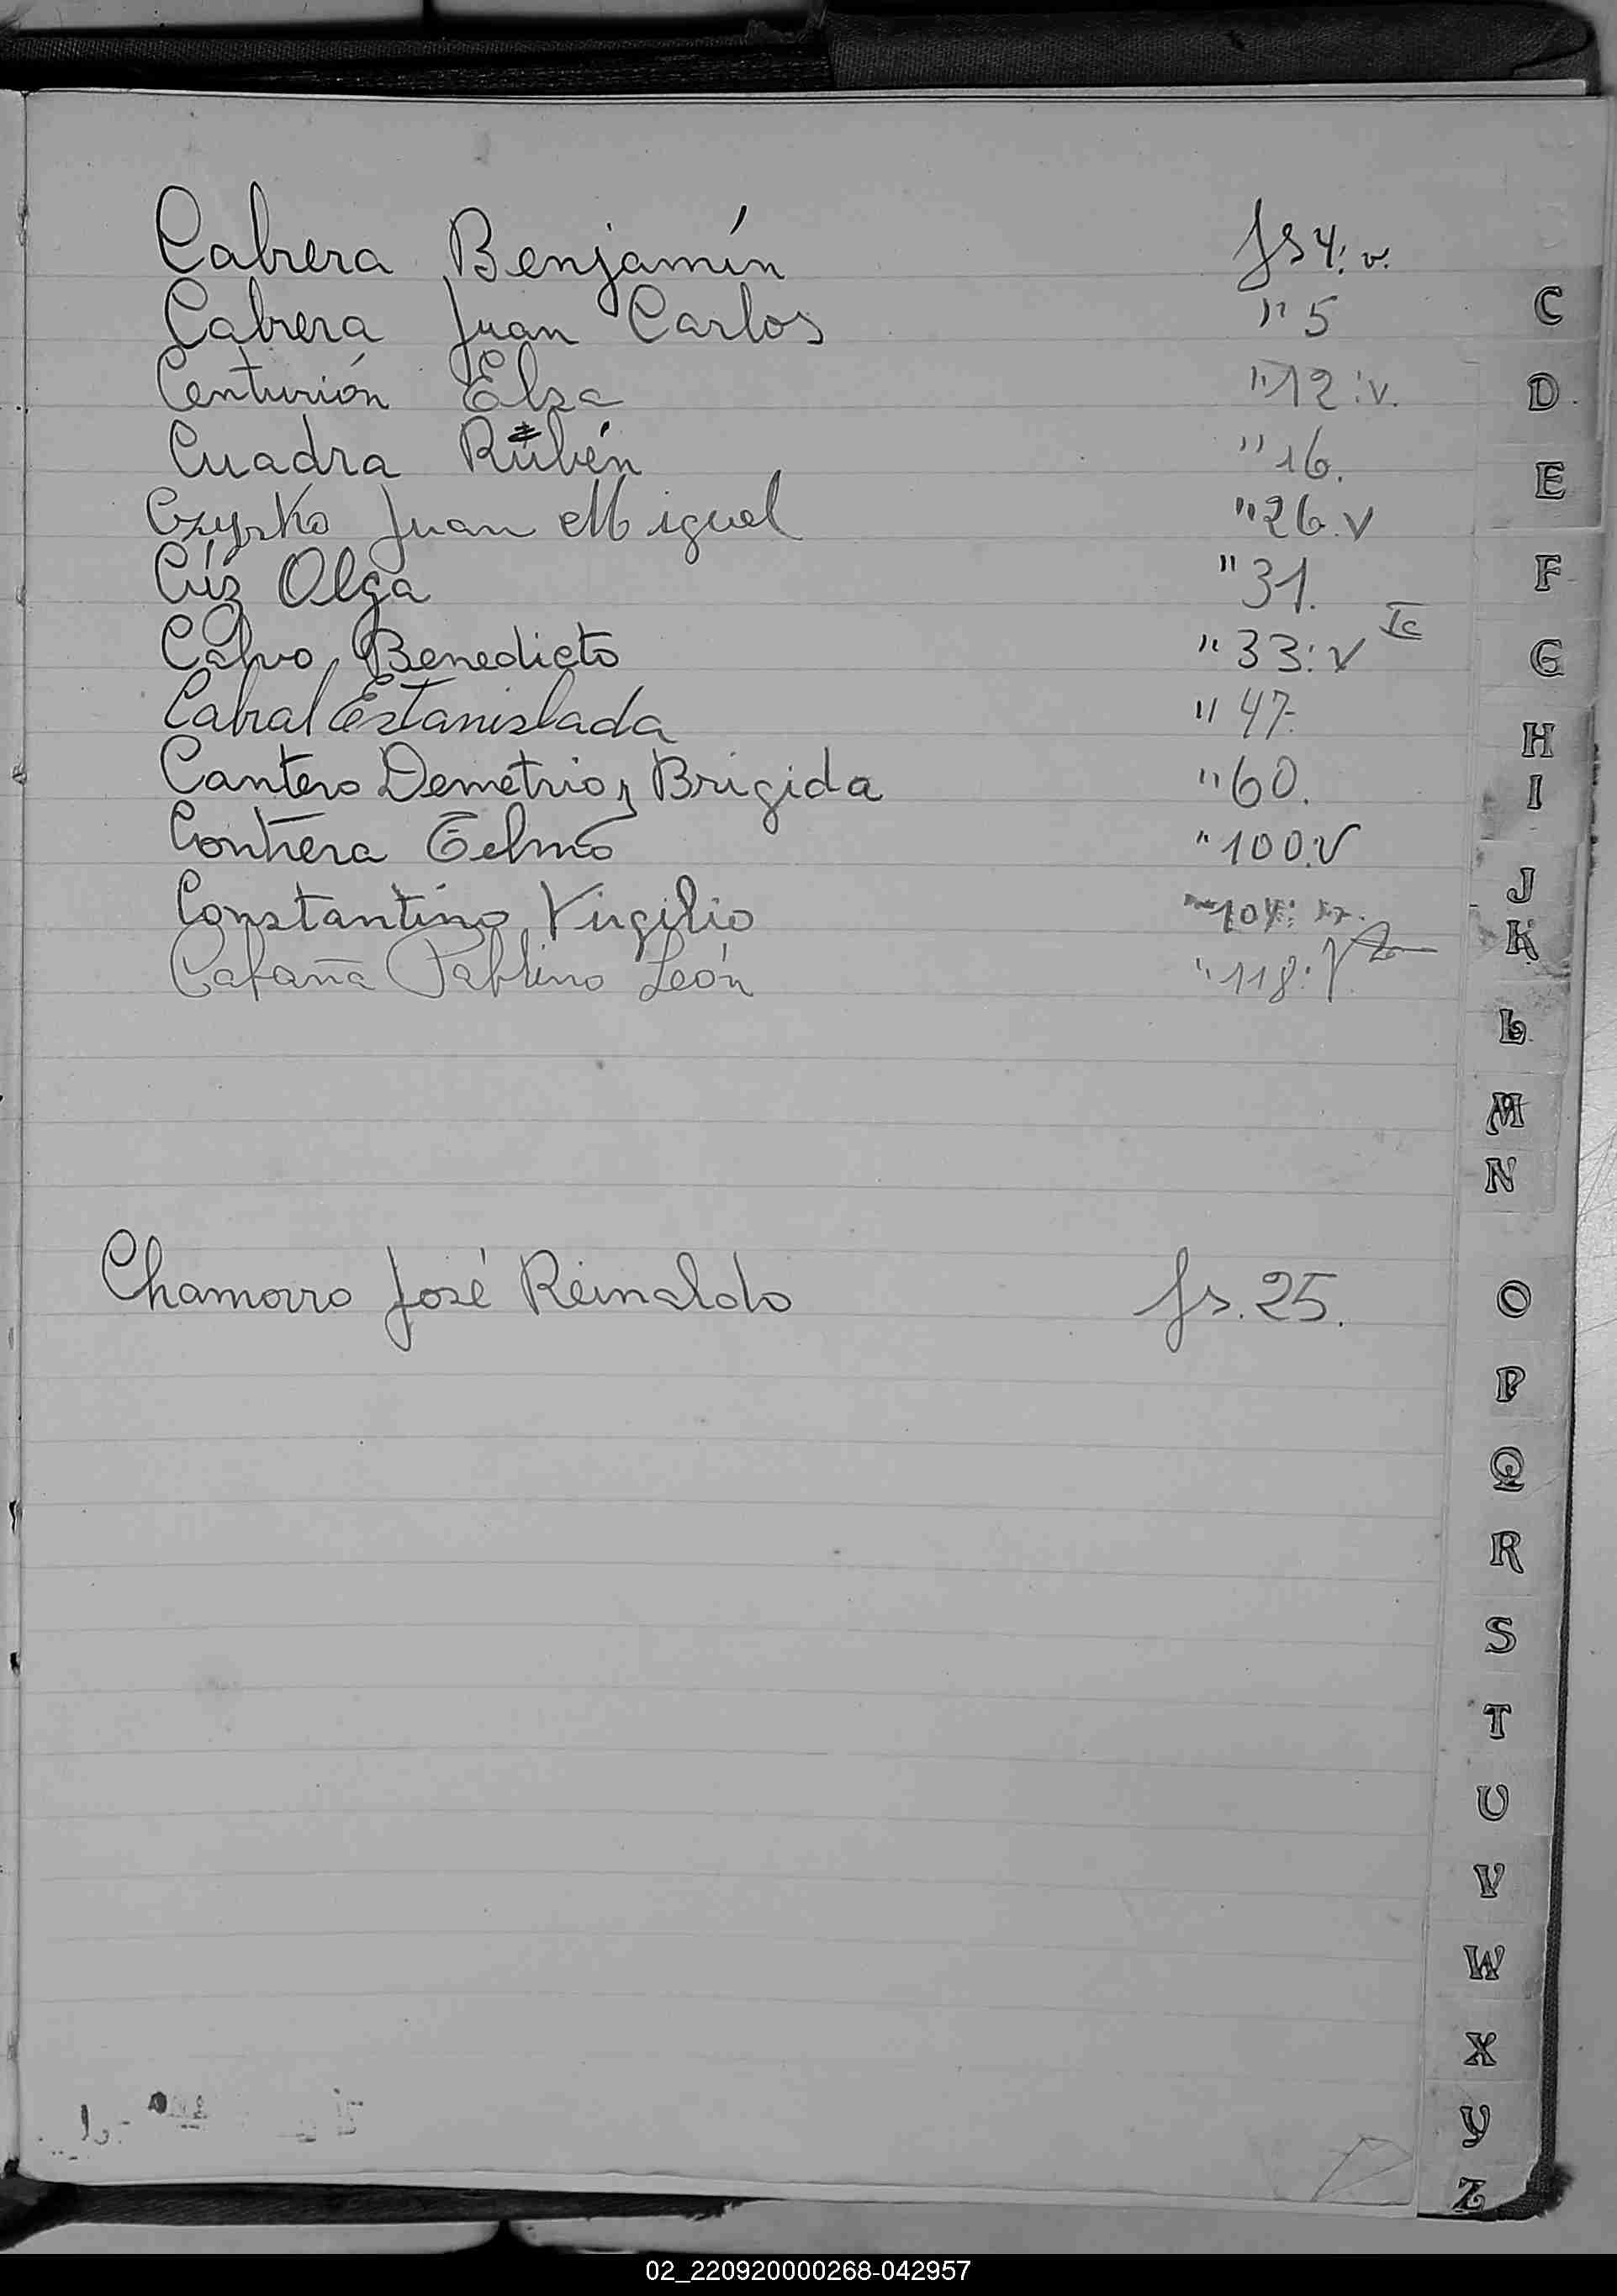 Cabrera Benjamín fs 4: v.
Cabrera Juan Carlos " 5
Centurión Elsa " 12: v.
Cuadra Rubén " 16.
Czysko Juan Miguel " 26 v
Olga " 31.
Calvo Benedicto " 33: v
Cabral Estanislada " 47.
Cantero Demetrio y Brigida " 60.
Contrera Telmo " 100. v
Constantino Virgilio
León " 118:
Chamorro José Reinaldo fs. 25.
C
D
E
F
G
H
I
J
K
L
M
N
O
P
Q
R
S
T
U
V
W
X
Y
Z
02_220920000268-042957